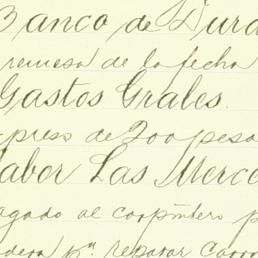 Banco de Dura
remesa de la fecha
Gastos Grales.
press de 200 peso
abor Las Merce
agado al carpintero p
dera pª. reparar Carro